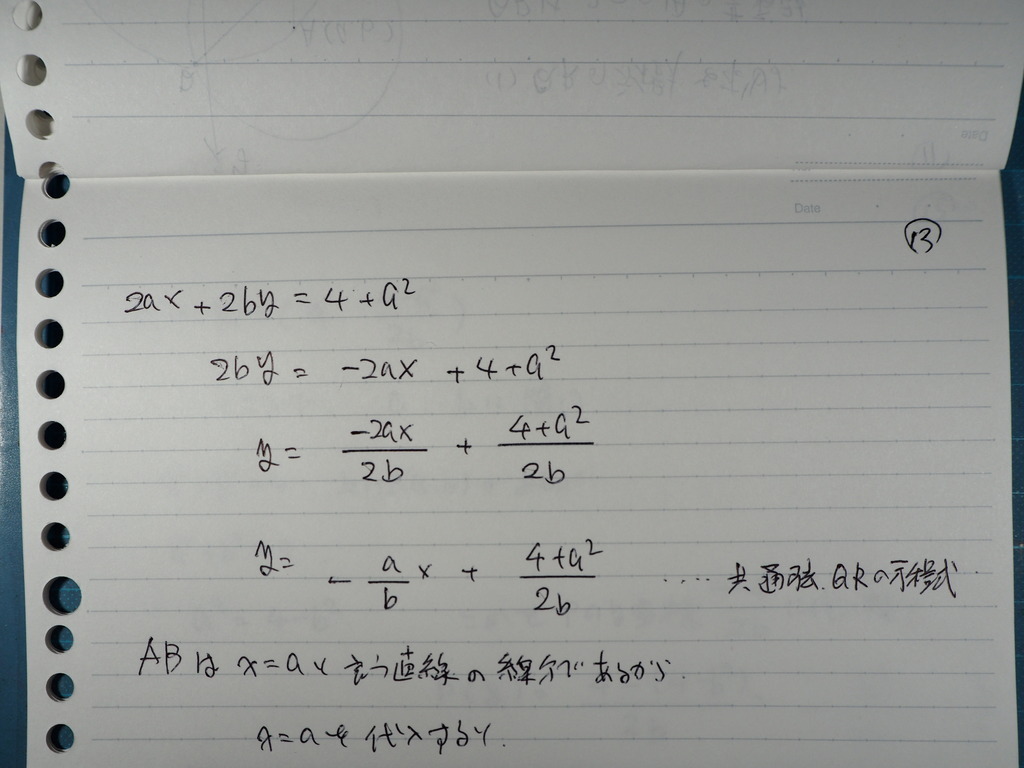 Date
⑬
2ax + 2by = 4 + a²
2by = -2ax + 4 + a²
y = -2ax/2b + (4+a²)/2b
y = - a/b x + (4+a²)/2b ‥‥ 共通弦QRの方程式
ABは x=aと言う直線の線分であるから
x=aを代入すると.